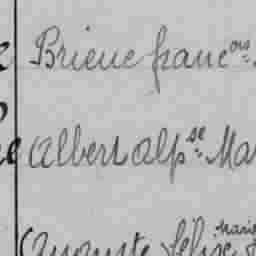 Brieue franc ois.
Albert alp se Ma
Auguste Félix Marie